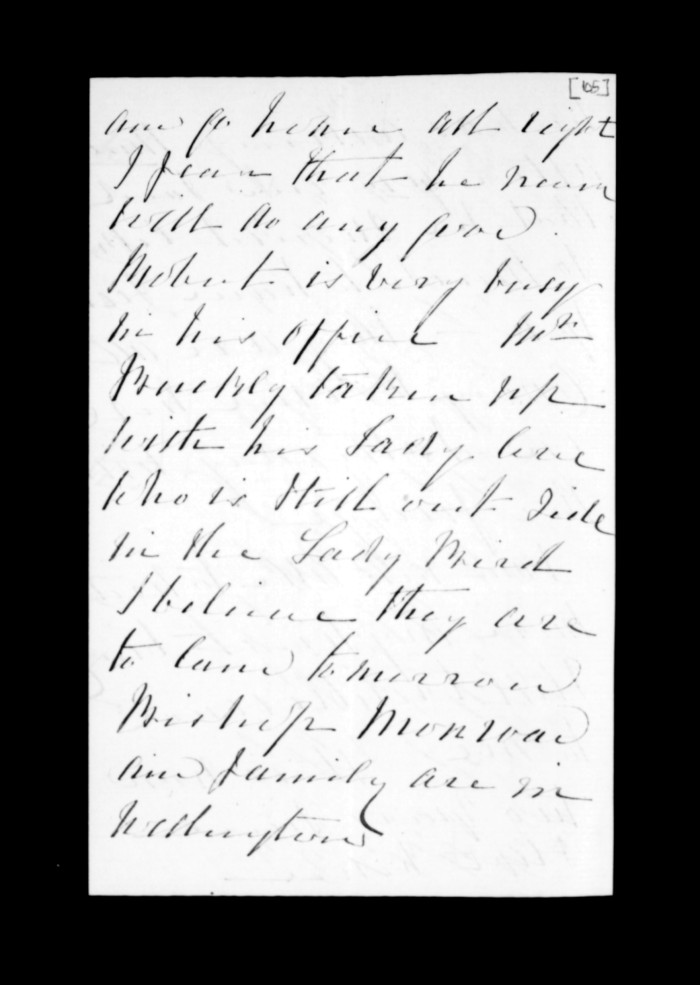 [105]
and go home all right
I fear that he never
will do any good.
Robert is very busy
in his office Mr
Buckly taken up
with his Lady love
who is still out side
in the Lady Bird
I believe they are
to land tomorrow
Bishop Monroad
and family are in
Wellington